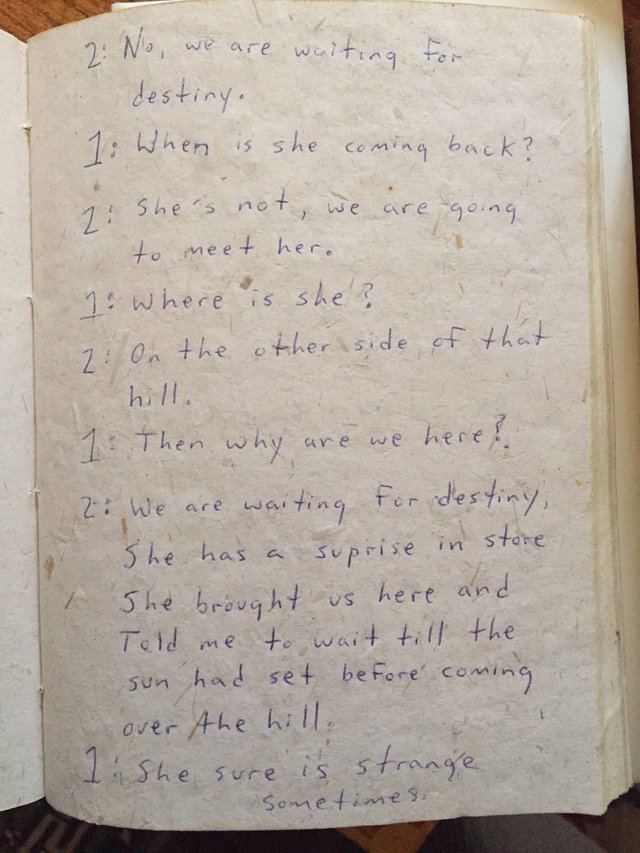 2: No, we are waiting for
destiny.
1: When is she coming back?
2: She's not, we are going
to meet her.
1: Where is she?
2: On the other side of that
hill.
1: Then why are we here?
2: We are waiting for destiny,
She has a suprise in store
She brought us here and
Told me to wait till the
sun had set before coming
over the hill.
1: She sure is strange
sometimes.